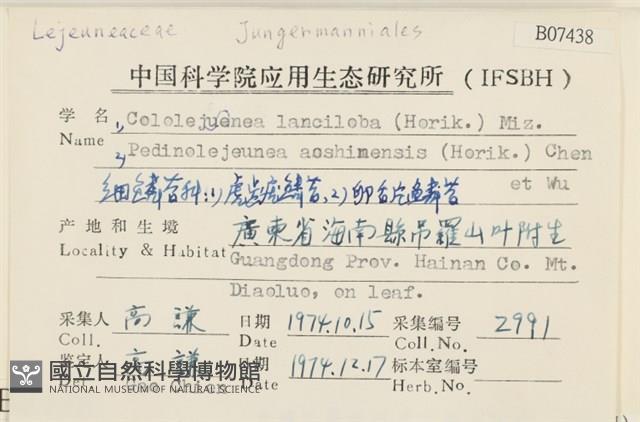 Lejeuneaceae Jungermanniales B07438
中国科学院应用生态研究所 (IFSBH)
学名 1, Cololejeunea lanciloba (Horik.) Miz.
Name 2, Pedinolejeunea aoshimensis (Horik.) Chen
et Wu
细鳞苔科: 1) 鳞苔, 2) 卵 鳞苔
产地和生境 廣東省海南縣吊羅山叶附生
Locality & Habitat Guangdong Prov. Hainan Co. Mt.
Diaoluo, on leaf.
采集人 高謙 日期 1974.10.15 采集编号 2991
Coll. Date Coll.No.
鉴定人 高謙 日期 1974.12.17 标本室编号
Date Herb.No.
國立自然科學博物館
NATIONAL MUSEUM OF NATURAL SCIENCE